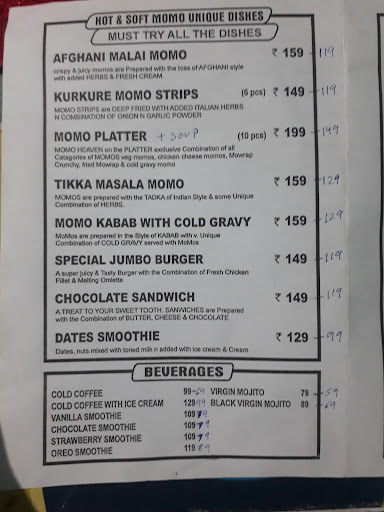 HOT & SOFT MOMO UNIQUE DISHES
MUST TRY ALL THE DISHES
AFGHANI MALAI MOMO ₹ 159 - 119
crispy & juicy momos are Prepared with the toss of AFGHANI style
with added HERBS & FRESH CREAM.
KURKURE MOMO STRIPS (6 pcs) ₹ 149 - 119
MOMO STRIPS are DEEP FRIED WITH ADDED ITALIAN HERBS
N COMBINATION OF ONION N GARLIC POWDER
MOMO PLATTER + SOUP (10 pcs) ₹ 199 - 149
MOMO HEAVEN on the PLATTER exclusive Combination of all
Catagories of MOMOS veg momos, chicken cheese momos, Mowrap
Crunchy, fried Mowrap & cold gravy momo
TIKKA MASALA MOMO ₹ 159 - 129
MOMOS are prepared with the TADKA of Indian Style & some Unique
Combination of HERBS.
MOMO KABAB WITH COLD GRAVY ₹ 159 - 129
MoMos are prepared in the Style of KABAB with v. Unique
Combination of COLD GRAVY served with MoMos
SPECIAL JUMBO BURGER ₹ 149 - 119
A super juicy & Tasty Burger with the Combination of Fresh Chicken
Fillet & Melting Omlette
CHOCOLATE SANDWICH ₹ 149 - 119
A TREAT TO YOUR SWEET TOOTH, SANWICHES are Prepared
with the Combination of BUTTER, CHEESE & CHOCOLATE
DATES SMOOTHIE ₹ 129 - 99
Dates, nuts mixed with toned milk n added with ice cream & Cream
BEVERAGES
COLD COFFEE 99 - 69 VIRGIN MOJITO 79 - 59
COLD COFFEE WITH ICE CREAM 129 99 BLACK VIRGIN MOJITO 89 - 69
VANILLA SMOOTHIE 109 79
CHOCOLATE SMOOTHIE 109 79
STRAWBERRY SMOOTHIE 109 79
OREO SMOOTHIE 119 89